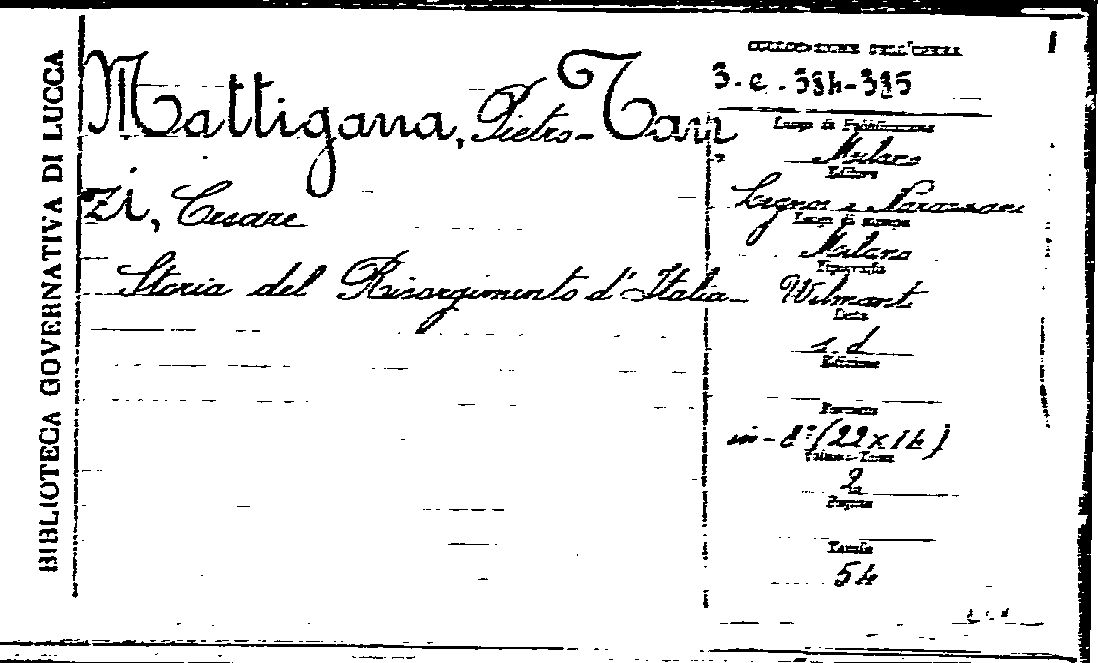 BIBLIOTECA GOVERNATIVA DI LUCCA
Mattigana, Pietro - Tan
zi, Cesare
Storia del Risorgimento d'Italia -
COLLOCAZIONE DELL'OPERA
Luogo di Pubblicazione
Milano
Editore
Luogo di stampa
Milano
Tipografia
Wilmant
Data
s. d.
Edizione
Formato
in-8° (22x14)
Volume-Tomo
2
Pagine
Tavole
54